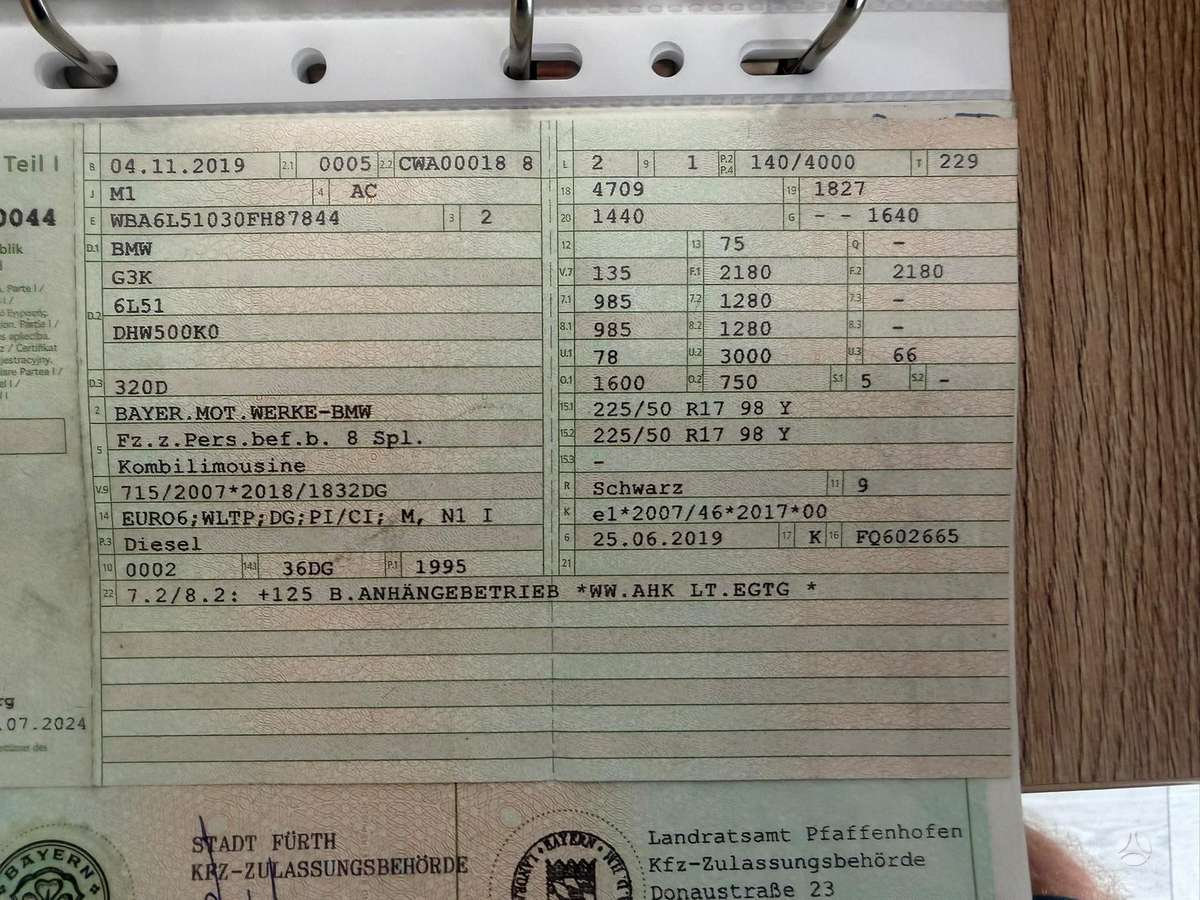 Teil I
0044
blik
. Parte I /
tion. Partie I /
z / Certifikat
jestracyjny.
iare Partea I /
rg
.07.2024
B 04.11.2019 2.1 0005 2.2 CWA00018 8
J M1 4 AC
E WBA6L51030FH87844 3 2
D.1 BMW
D.2 G3K
6L51
DHW500K0
D.3 320D
2 BAYER.MOT.WERKE-BMW
5 Fz.z.Pers.bef.b. 8 Spl.
Kombilimousine
V.9 715/2007*2018/1832DG
14 EURO6;WLTP;DG;PI/CI; M, N1 I
P.3 Diesel
10 0002 14.1 36DG P.1 1995
L 2 9 1 P.2 P.4 140/4000 T 229
18 4709 19 1827
20 1440 G - - 1640
12 13 75 Q -
V.7 135 F.1 2180 F.2 2180
7.1 985 7.2 1280 7.3 -
8.1 985 8.2 1280 8.3 -
U.1 78 U.2 3000 U.3 66
O.1 1600 O.2 750 S.1 5 S.2 -
15.1 225/50 R17 98 Y
15.2 225/50 R17 98 Y
15.3 -
R Schwarz 11 9
K e1*2007/46*2017*00
6 25.06.2019 17 K 16 FQ602665
21
22 7.2/8.2: +125 B.ANHÄNGEBETRIEB *WW.AHK LT.EGTG *
BAYERN
STADT FÜRTH
KFZ-ZULASSUNGSBEHÖRDE
BAYERN
Landratsamt Pfaffenhofen
Kfz-Zulassungsbehörde
Donaustraße 23